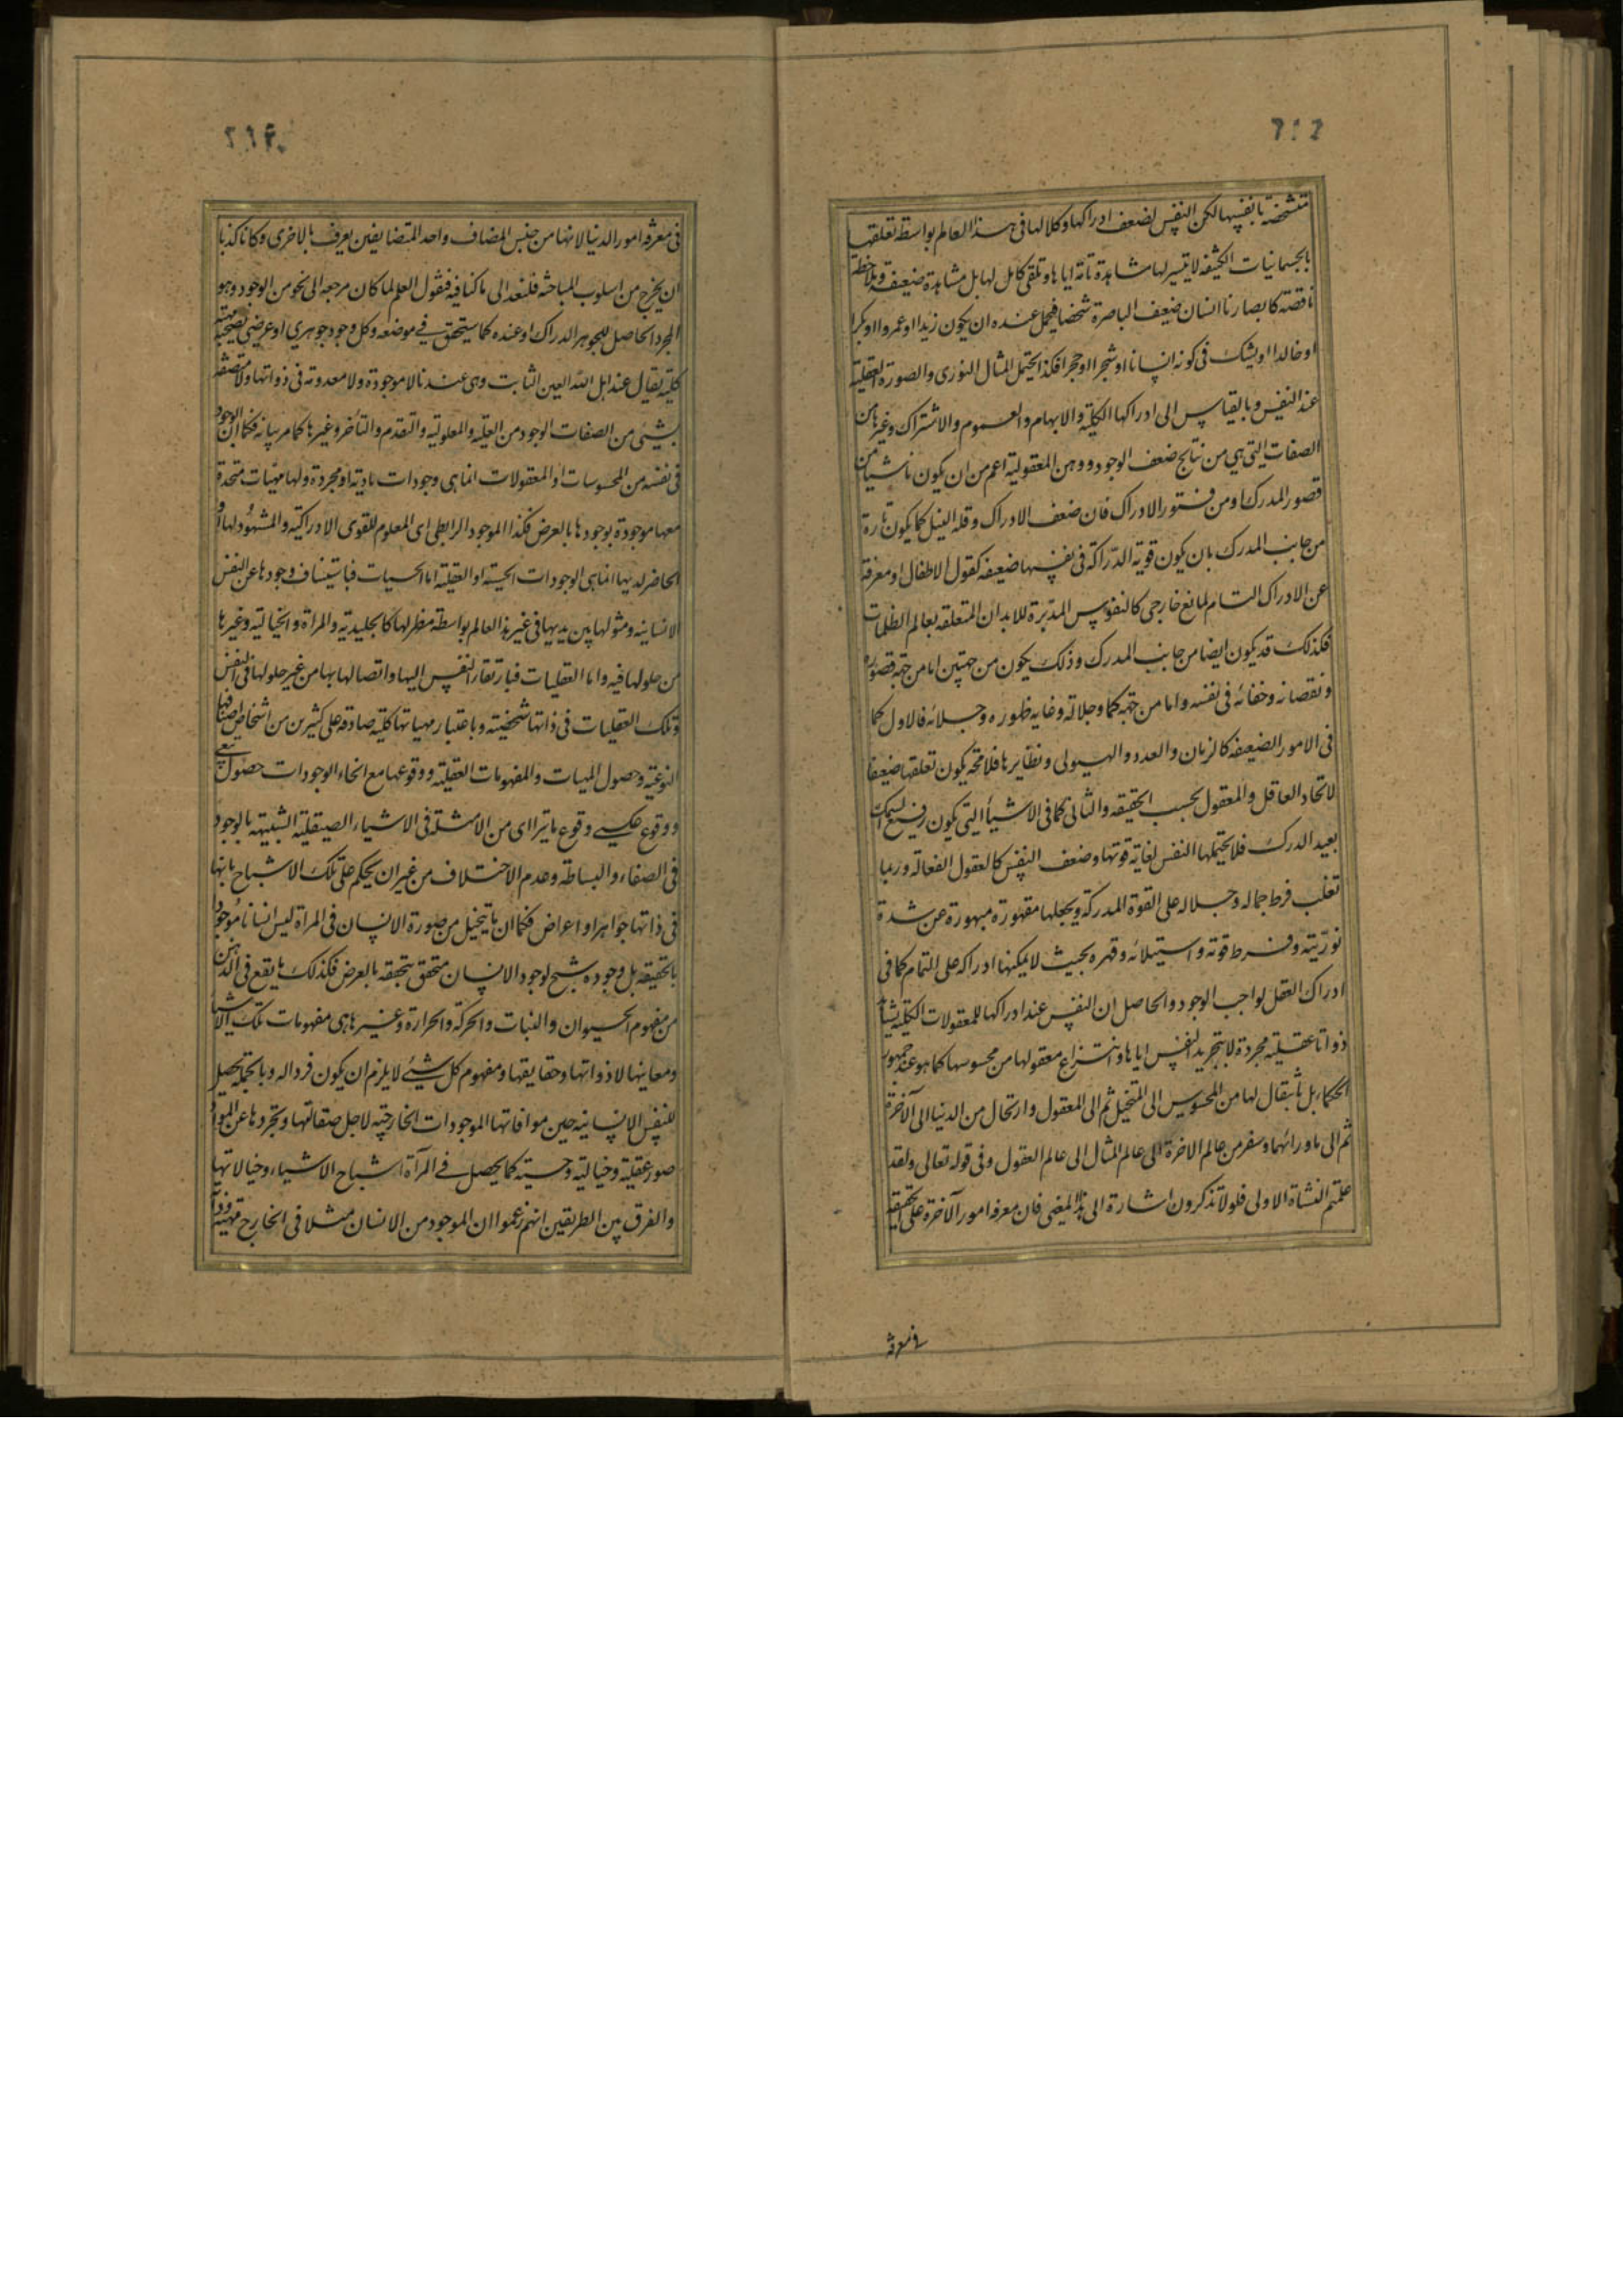 متشخصة بانفسها لكن النفس لضعف ادراكها وكلالها فى هذا العالم بواسطة تعلقها
بالجسمانيات الكثيفه لا يتيسر لها مشاهدة تامة اياها وتلقى كامل لها بل مشاهدة ضعيفه وملاحظة
ناقصة كابصارنا انسان ضعيف الباصرة شخصا فيحتمل عنده ان يكون زيدا او عمروا او بكرا
او خالدا او يشك فى كونه انسانا او شجرا او حجرا فكذا يحتمل المثال النورى والصورة العقلية
عند النفس وبالقياس الى ادراكها الكلية والابهام والعموم والاشتراك وغيرها من
الصفات التى هى من نتايج ضعف الوجود ووهن المعقولية اعم من ان يكون ناشيا من
قصور المدرك او من فتور الادراك فان ضعف الادراك وقلة النيل كما يكون تارة
من جانب المدرك بان يكون قوية الدراكة فى نفسها ضعيفه كعقول الاطفال او معرفة
عن الادراك التام لمانع خارجى كالنفوس المدبرة للابدان المتعلقه بعالم الظلمات
فكذلك قد يكون ايضا من جانب المدرك وذلك يكون من جهتين اما من جهة قصوره
ونقصانه وخفائه فى نفسه واما من جهة كماله وجلالته وغاية ظهوره وجلائه فالاول كما
فى الامور الضعيفه كالزمان والعدد والهيولى ونظايرها فلا محة يكون تعلقها ضعيفا
لاتحاد العاقل والمعقول بحسب الحقيقه والثانى كما فى الاشياء التى يكون رفيع السمك
بعيد الدرك فلا يحتملها النفس لغاية قوتها وضعف النفس كالعقول الفعالة وربما
تغلب فرط جماله وجلاله على القوة المدركة ويجعلها مقهورة مبهورة عن شدة
نوريته وفرط قوته واستيلائه وقهره بحيث لا يمكنها ادراكه على التمام كما فى
ادراك العقل لواجب الوجود والحاصل ان النفس عند ادراكها للمعقولات الكلية يشاهد
ذواتا عقلية مجردة لا بتجريد النفس اياها وانتزاع معقولها من محسوسها كما هو عند جمهور
الحكماء بل بانتقال لها من المحسوس الى المتخيل ثم الى المعقول وارتحال من الدنيا الى الآخرة
ثم الى ماورائهما وسفر من عالم الاخرة الى عالم المثال الى عالم العقول وفى قوله تعالى ولقد
علمتم النشاة الاولى فلولا تذكرون اشارة الى هذا المعنى فان معرفة امور الآخرة على الحقيقه
فى معرفة
فى معرفة امور الدنيا لانها من جنس المضاف واحد المتضايفين يعرف بالاخرى وكانا كدنا
ان نخرج من اسلوب المباحثه فلنعد الى ما كنا فيه فنقول العلم لما كان مرجعه الى نحو من الوجود وهو
المجرد الحاصل للجوهر الدراك او عنده كما سيتحقق فى موضعه وكل وجود جوهرى او عرضى يصحبه مهية
كلية يقال عند اهل الله العين الثابت وهى عندنا لا موجودة ولا معدومة فى ذواتها ولا متصفة
بشيئى من الصفات الوجود من العلية والمعلولية والتقدم والتأخر وغيرها كما مر بيانه فكما ان الموجود
فى نفسه من المحسوسات او المعقولات انما هى وجودات مادية او مجردة ولها مهيات متحدة
معها موجودة بوجودها بالعرض فكذا الموجود الرابطى اى المعلوم للقوى الادراكية والمشهود لها او
الحاضر لديها انما هى الوجودات الحسية او العقلية اما الحسيات فباستيناف وجودها عن النفس
الانسانيه ومثولها بين يديها فى غير هذا العالم بواسطة مظهر لها كالجليدية والمراة والخيالية وغيرها
من حلولها فيه واما العقليات فبارتقاء النفس اليها واتصالها بها من غير حلولها فى النفس
وتلك العقليات فى ذاتها شخصية وباعتبار مهياتها كلية صادقة على كثيرين من اشخاص اصنافها
النوعية وحصول المهيات والمفهومات العقلية ووقوعها مع انحاء الوجودات حصول تبعى
ووقوع عكسى وقوع ما يتراءى من الامثلة فى الاشياء الصيقلية الشبيهة بالوجود
فى الصفاء والبساطة وعدم الاختلاف من غير ان يحكم على تلك الاشباح بانها
فى ذاتها جواهر او اعراض فكما ان ما يتخيل من صورة الانسان فى المراة ليس انسانا موجودا
بالحقيقة بل وجوده شبح لوجود الانسان متحقق بتحققه بالعرض فكذلك ما يقع فى الذهن
من مفهوم الحيوان والنبات والحركة والحرارة وغيرها هى مفهومات تلك الاشياء
ومعانيها لا ذواتها وحقايقها ومفهوم كل شيئى لا يلزم ان يكون فردا له وبالجملة يحصل
للنفس الانسانية حين موافاتها الموجودات الخارجية لاجل صقالتها وتجردها عن المواد
صور عقلية وخيالية وحسية كما يحصل فى المرآة اشباح الاشياء وخيالاتها
والفرق بين الطريقين انهم زعموا ان الموجود من الانسان مثلا فى الخارج مهيته وذاته